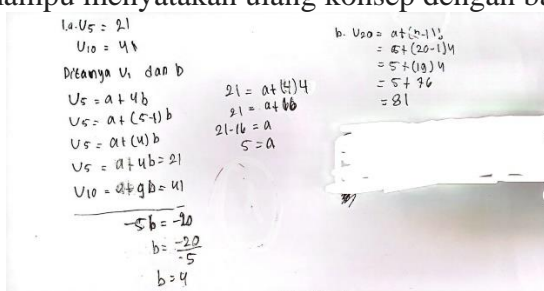 mampu menyatakan ulang konsep dengan ba
1.a. U5 = 21
U10 = 41
Ditanya U1 dan b
U5 = a + 4b
U5 = a + (5-1) b
U5 = a + (4) b
U5 = a + 4b = 21
U10 = a + 9b = 41
-5b = -20
b = -20/-5
b = 4
21 = a + (4) 4
21 = a + 16
21 - 16 = a
5 = a
b. U20 = a + (n-1)b
= 5 + (20-1) 4
= 5 + (19) 4
= 5 + 76
= 81